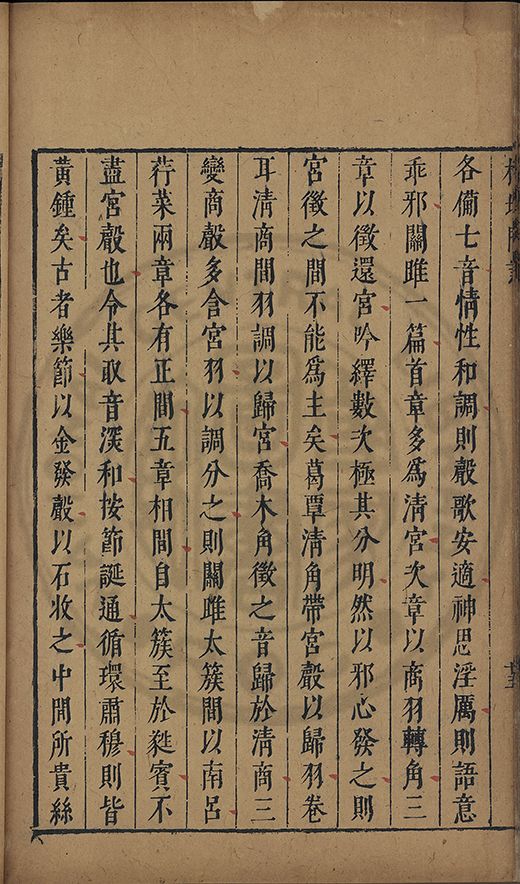 各備七音情性和調則聲歌安適神思淫厲則語意
乖邪關雎一篇首章多為清宮次章以商羽轉角三
章以徵還宮吟繹數次極其分明然以邪心發之則
宮徵之間不能為主矣葛覃清角帶宮聲以歸羽卷
耳清商間羽調以歸宮喬木角徵之音歸於清商三
變商聲多含宮羽以調分之則關雎太簇間以南呂
荇菜兩章各有正間五章相間自太簇至於蕤賓不
盡宮聲也令其取音深和按節誕通循環肅穆則皆
黃鍾矣古者樂節以金發聲以石收之中間所貴絲